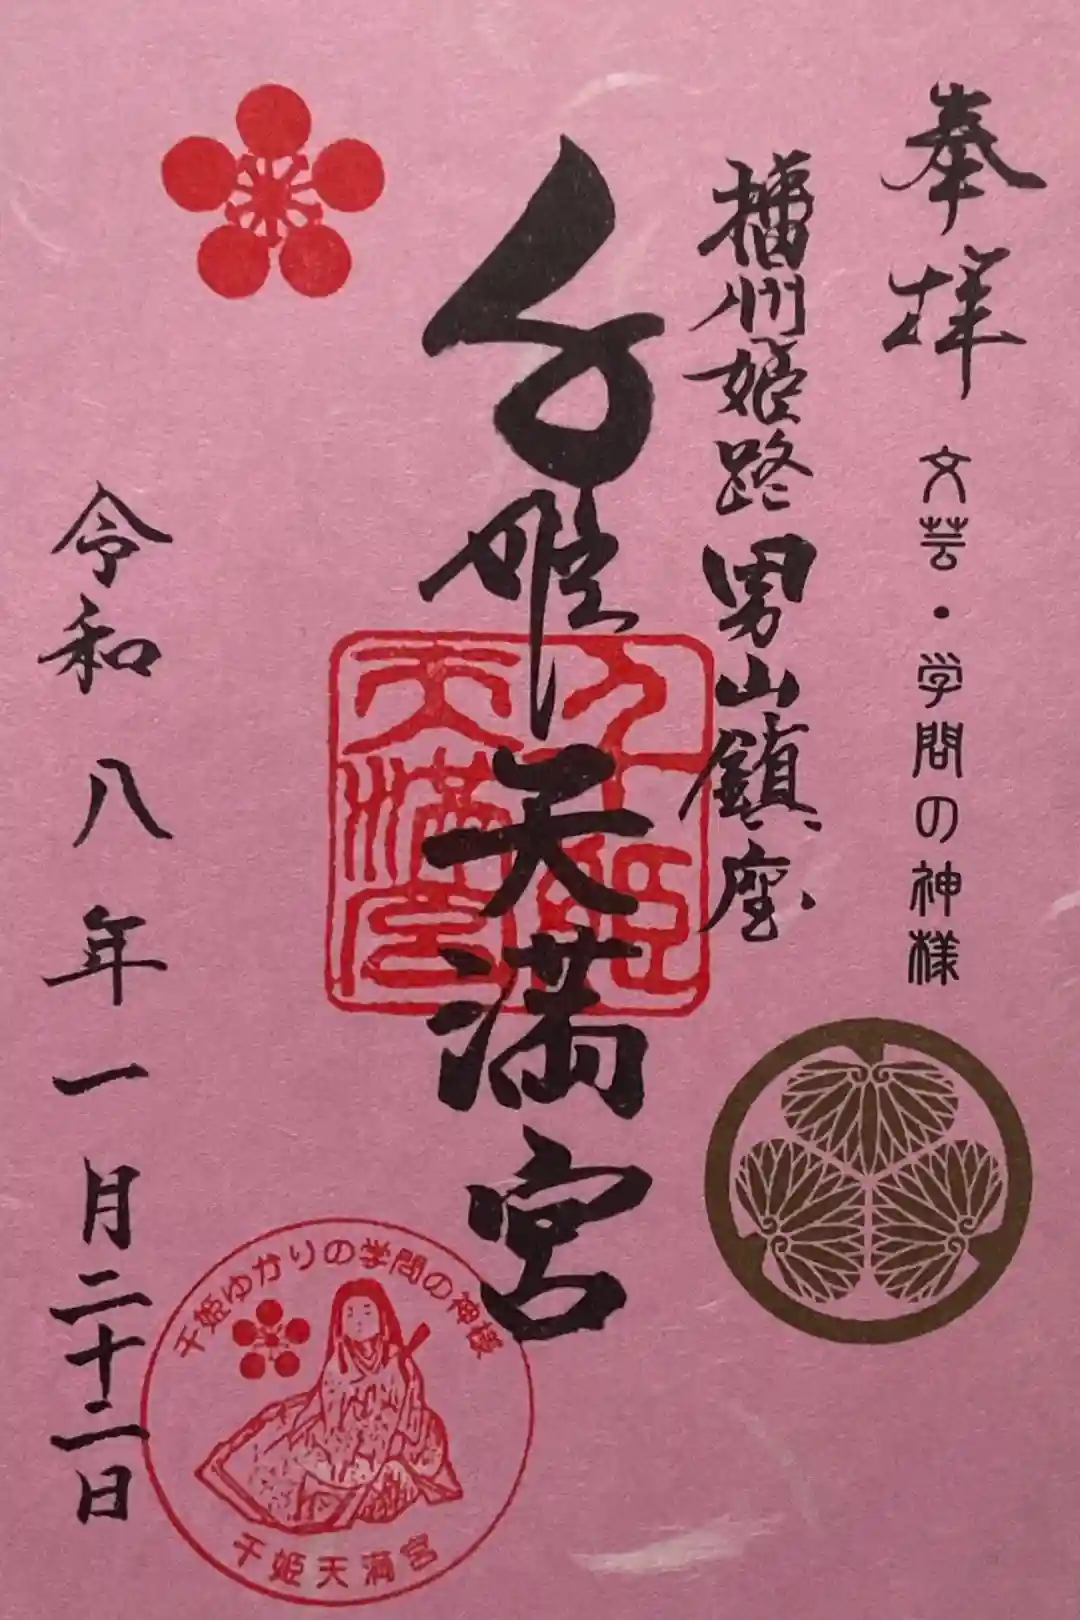 奉拝
文芸・学問の神様
播州姫路男山鎮座
千姫天満宮
千姫
天満宮
令和八年一月二十二日
千姫ゆかりの学問の神様
千姫天満宮